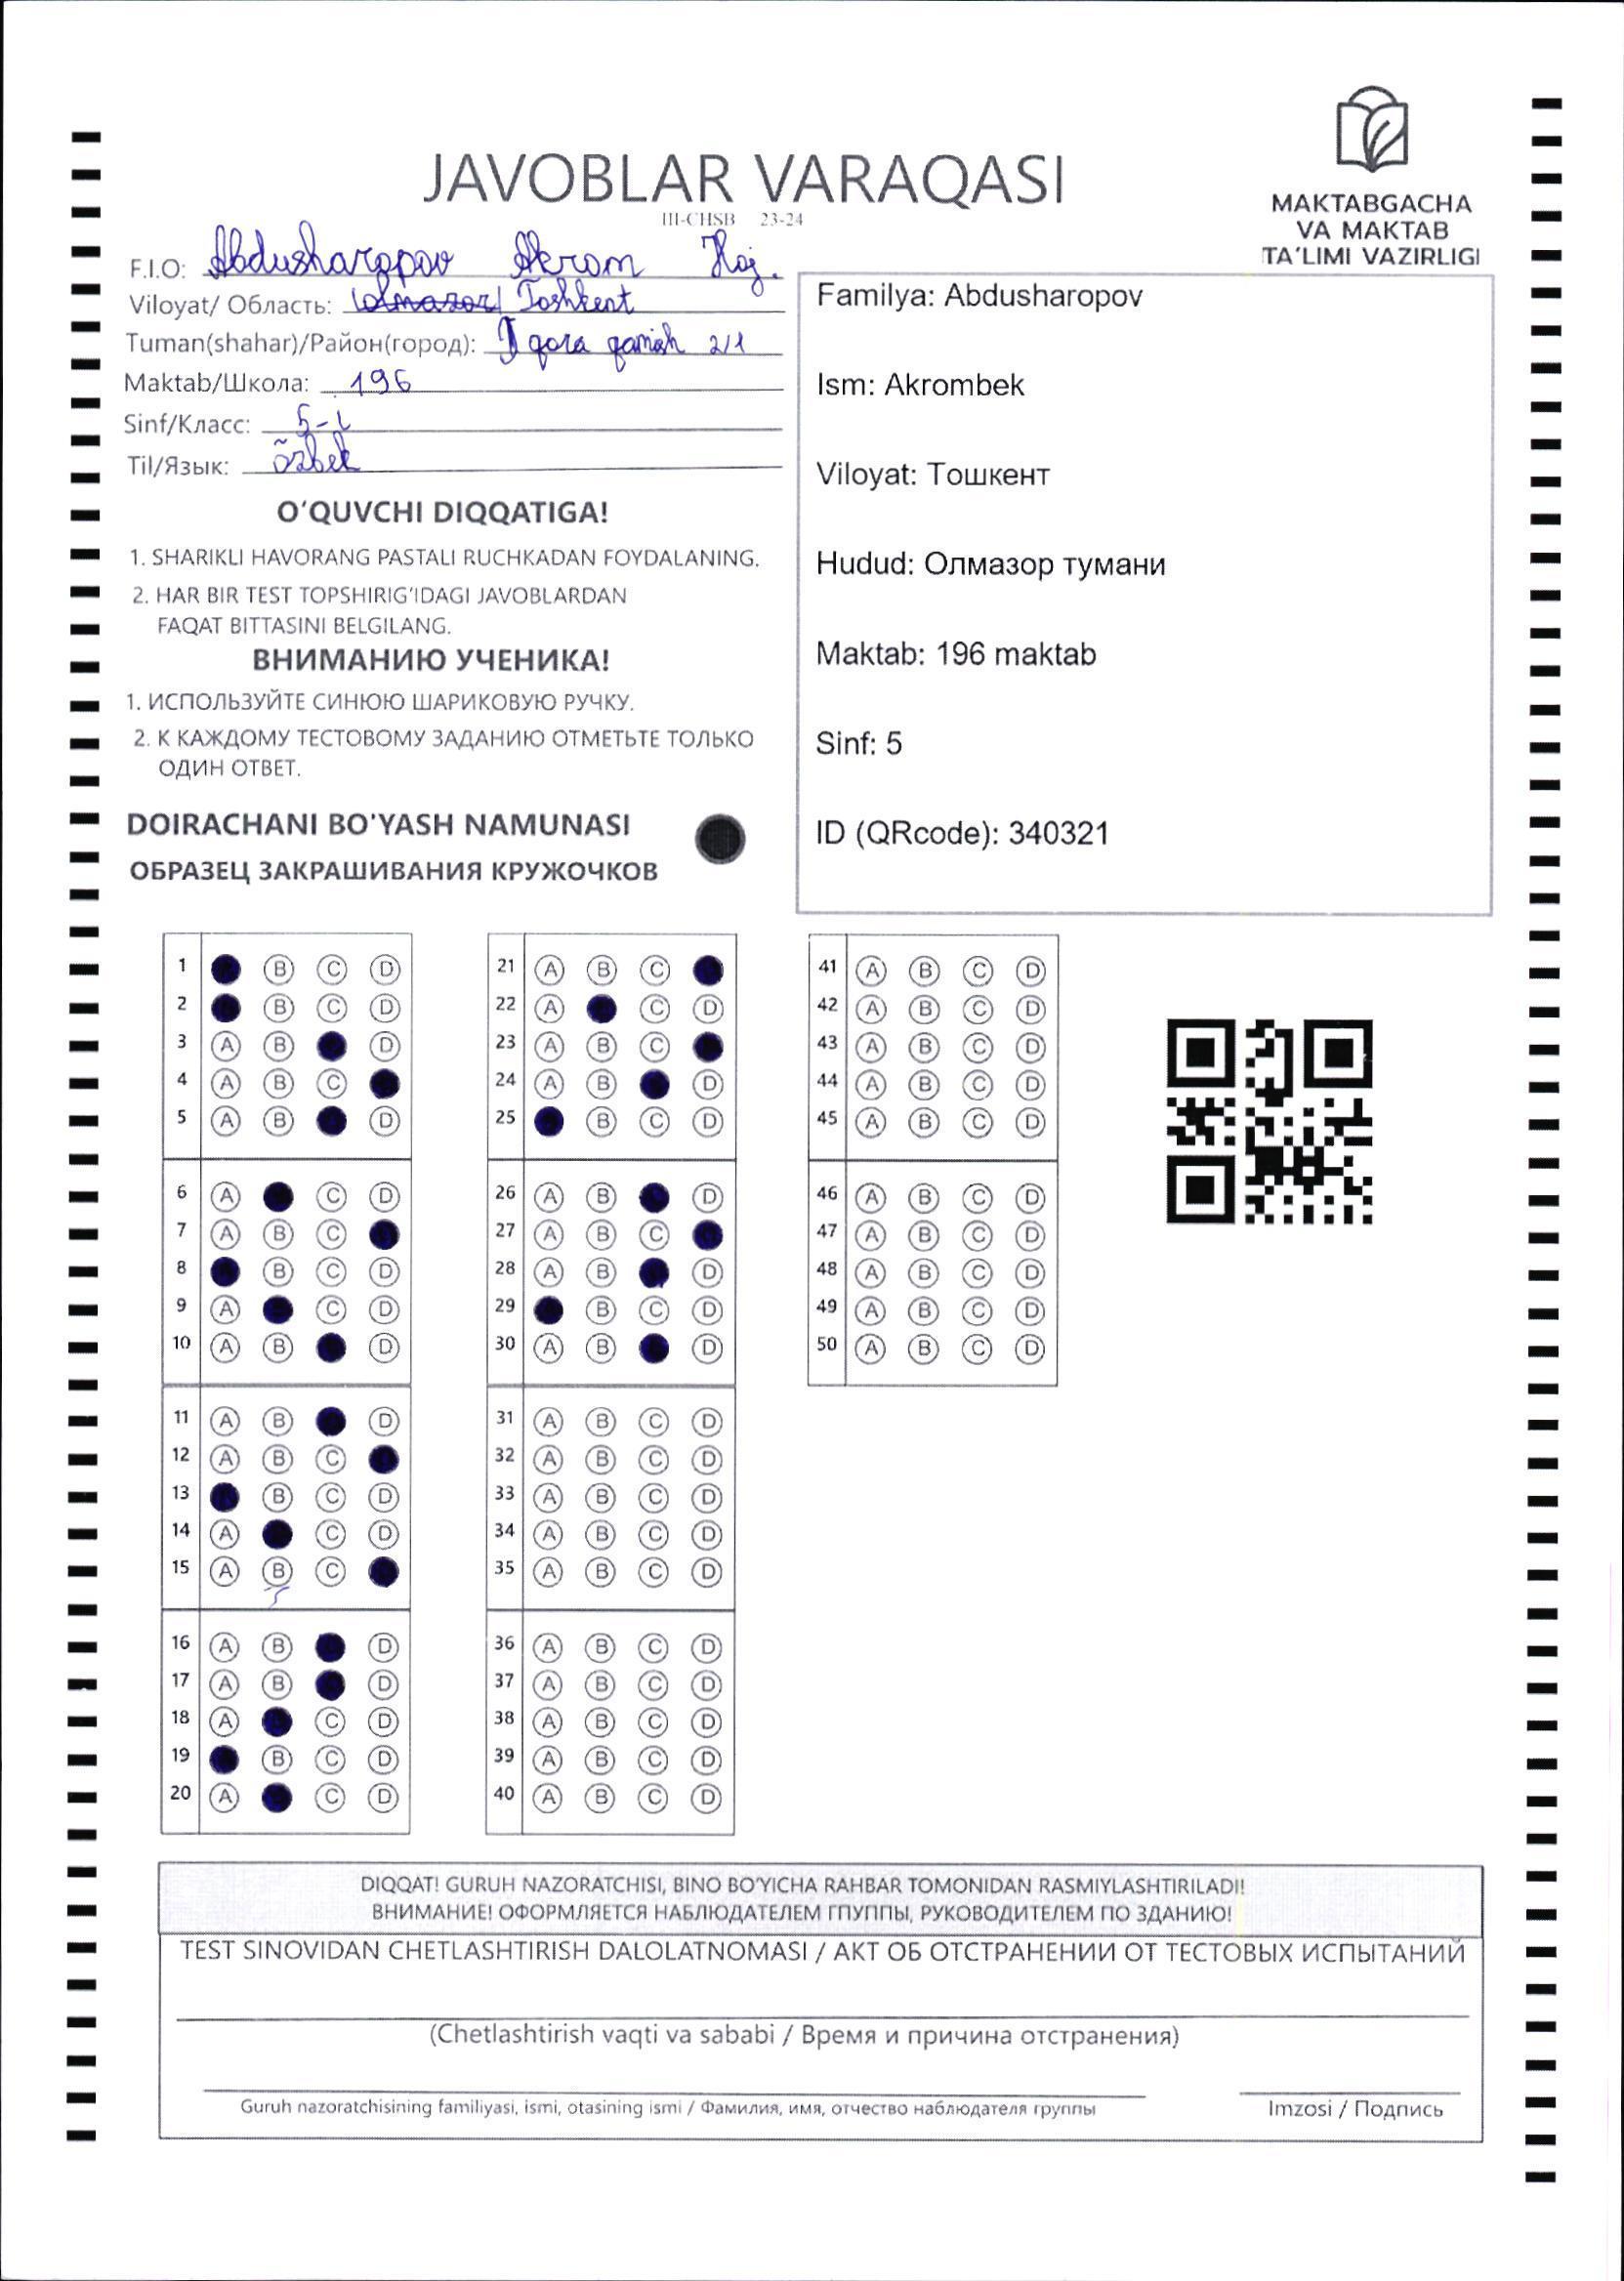 JAVOBLAR VARAQASI
III-CHSB 23-24
MAKTABGACHA
VA MAKTAB
TA'LIMI VAZIRLIGI
F.I.O: Abdusharopov Akrom Xoj.
Viloyat/ Область: Olmazor Toshkent
Tuman(shahar)/Район(город): qora qamish 2/1
Maktab/Школа: 196
Sinf/Класс: 5-
Til/Язык: õzbek
Familya: Abdusharopov
Ism: Akrombek
Viloyat: Тошкент
Hudud: Олмазор тумани
Maktab: 196 maktab
Sinf: 5
ID (QRcode): 340321
O'QUVCHI DIQQATIGA!
1. SHARIKLI HAVORANG PASTALI RUCHKADAN FOYDALANING.
2. HAR BIR TEST TOPSHIRIG'IDAGI JAVOBLARDAN
FAQAT BITTASINI BELGILANG.
ВНИМАНИЮ УЧЕНИКА!
1. ИСПОЛЬЗУЙТЕ СИНЮЮ ШАРИКОВУЮ РУЧКУ.
2. К КАЖДОМУ ТЕСТОВОМУ ЗАДАНИЮ ОТМЕТЬТЕ ТОЛЬКО
ОДИН ОТВЕТ.
DOIRACHANI BO'YASH NAMUNASI
ОБРАЗЕЦ ЗАКРАШИВАНИЯ КРУЖОЧКОВ
1 B C D
2 B C D
3 A B D
4 A B C
5 A B D
6 A C D
7 A B C
8 B C D
9 A C D
10 A B D
11 A B D
12 A B C
13 B C D
14 A C D
15 A B C
16 A B D
17 A B D
18 A C D
19 B C D
20 A C D
21 A B C
22 A C D
23 A B C
24 A B D
25 B C D
26 A B D
27 A B C
28 A B D
29 B C D
30 A B D
31 A B C D
32 A B C D
33 A B C D
34 A B C D
35 A B C D
36 A B C D
37 A B C D
38 A B C D
39 A B C D
40 A B C D
41 A B C D
42 A B C D
43 A B C D
44 A B C D
45 A B C D
46 A B C D
47 A B C D
48 A B C D
49 A B C D
50 A B C D
DIQQAT! GURUH NAZORATCHISI, BINO BO'YICHA RAHBAR TOMONIDAN RASMIYLASHTIRILADI!
ВНИМАНИЕ! ОФОРМЛЯЕТСЯ НАБЛЮДАТЕЛЕМ ГПУППЫ, РУКОВОДИТЕЛЕМ ПО ЗДАНИЮ!
TEST SINOVIDAN CHETLASHTIRISH DALOLATNOMASI / АКТ ОБ ОТСТРАНЕНИИ ОТ ТЕСТОВЫХ ИСПЫТАНИЙ
(Chetlashtirish vaqti va sababi / Время и причина отстранения)
Guruh nazoratchisining familiyasi, ismi, otasining ismi / Фамилия, имя, отчество наблюдателя группы
Imzosi / Подпись